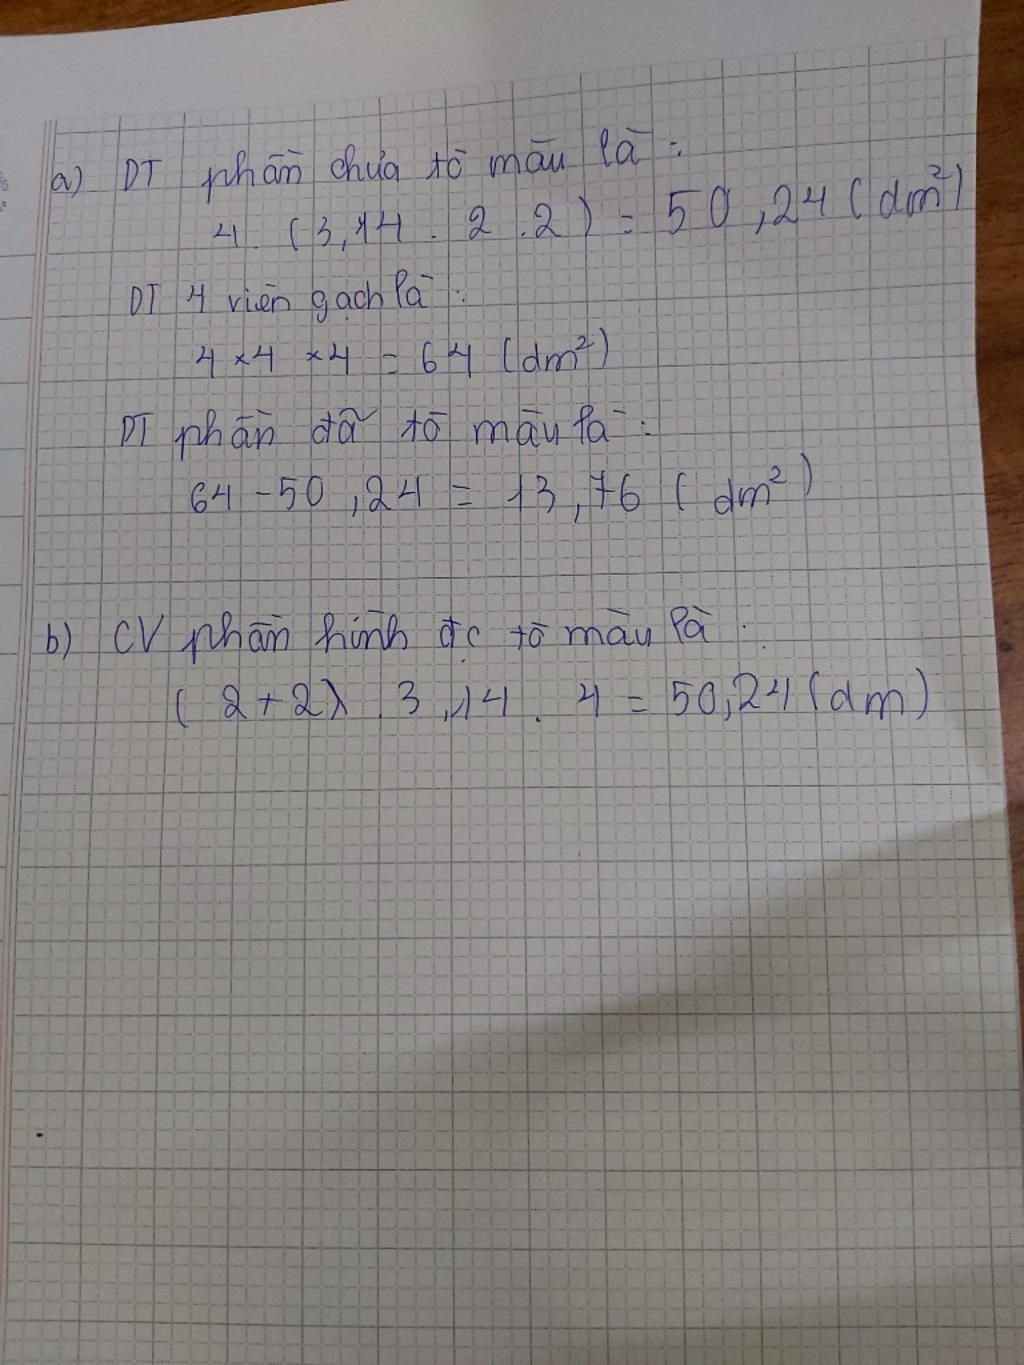 a) DT phần chưa tô màu là :
4 . ( 3,14 . 2 . 2 ) = 50,24 ( dm²)
DT 4 viên gạch là :
4 × 4 × 4 = 64 (dm²)
DT phần đã tô màu là :
64 - 50,24 = 13,76 ( dm²)
b) CV phần hình đc tô màu là :
( 2 + 2 ) . 3,14 . 4 = 50,24 (dm)